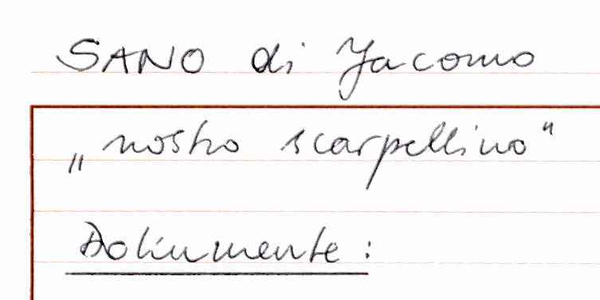 SANO di Jacomo
„nostro scarpellino“
Dokumente: